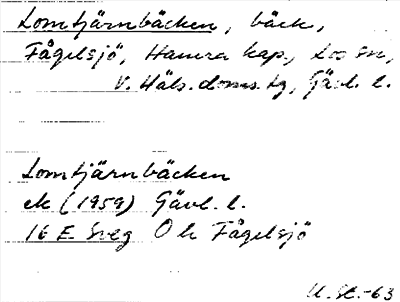 Lomtjärnbäcken, bäck,
Fågelsjö, Hamra kap., Los sn,
V. Häls. doms. tg, Gävl. l.
Lomtjärnbäcken
ek (1959) Gävl. l.
16 E Sveg O h Fågelsjö
U. St.-63